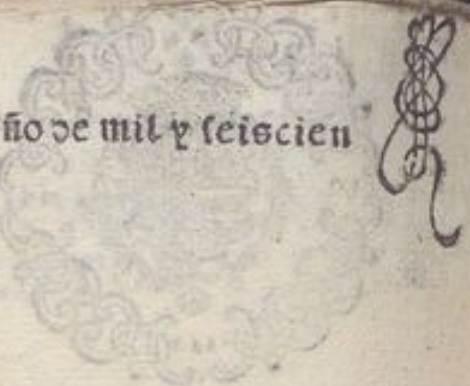 ño de mil y seiscien